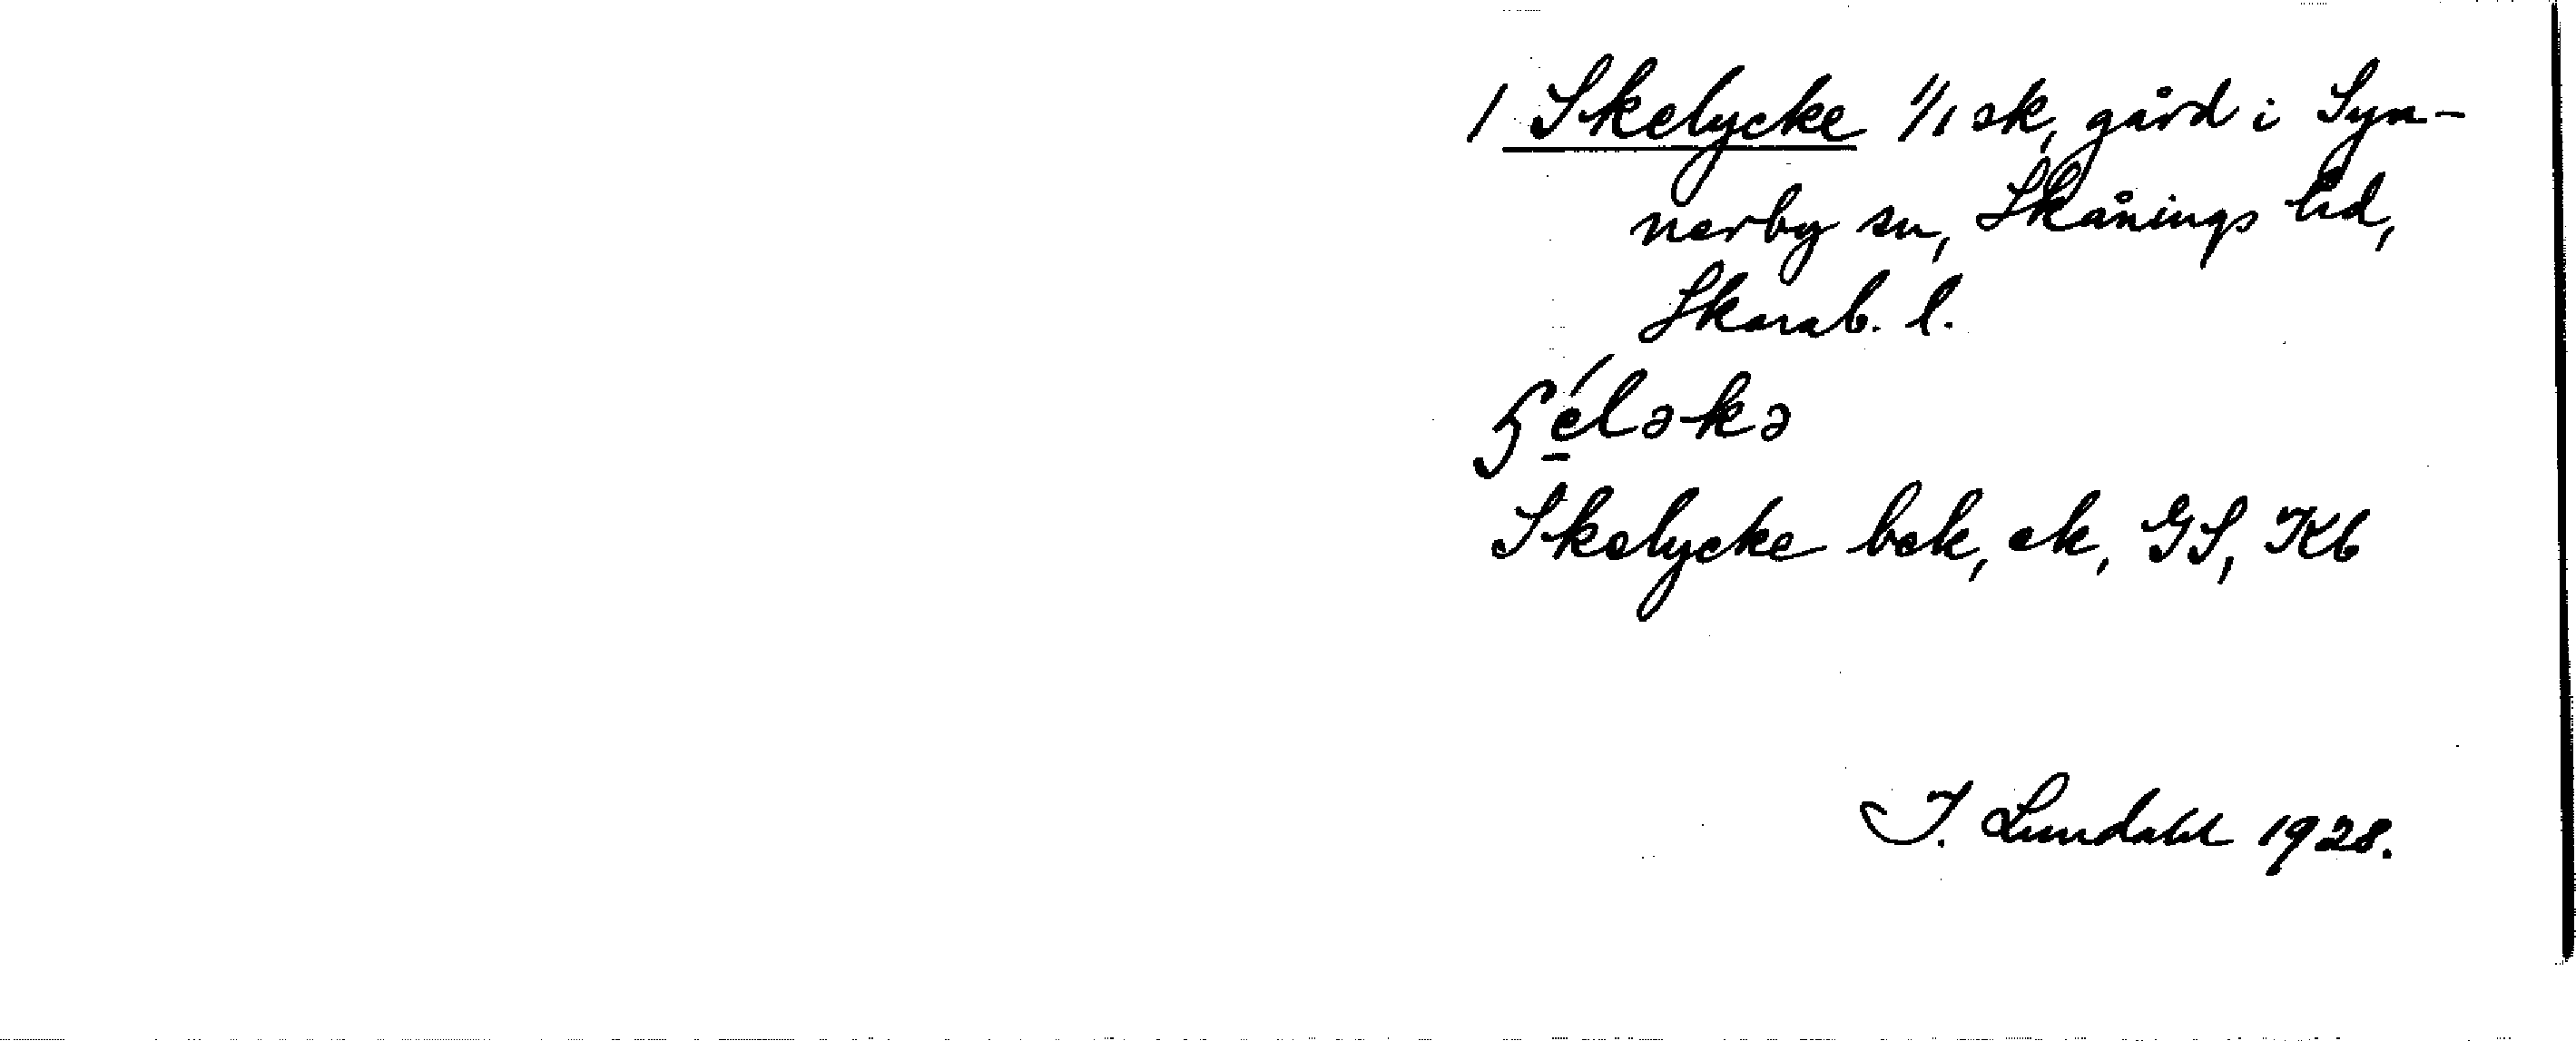 1 Skelycke 1/1 sk, gård i Syn-
nerby sn, Skånings hd,
Skarab. l.
ʃé̱ləkə
Skelycke bek, ek, GS, Kb
I. Lundahl 1928.